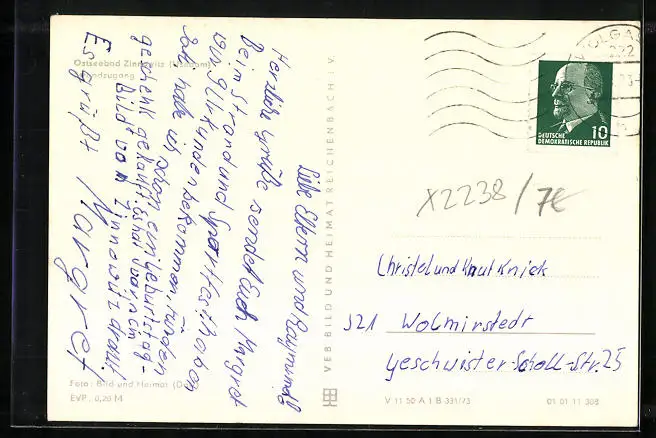 Ostseebad Zinnowitz (Usedom)
Strandzugang
Liebe Eltern und Raymund
Herzliche Grüße sendet Euch Margret
Beim Strand und Sportfest haben
wir Urkunden bekommen, für den
Vati habe ich schon ein Geburtstag-
geschenk gekauft
Bild von Zinnowitz drauf!
Es grüßt Margret
Foto: Bild und Heimat
EVP 0,20 M
VEB BILD UND HEIMAT REICHENBACH I. V.
WOLGAST
222
DEUTSCHE
DEMOKRATISCHE REPUBLIK
10
X2238/7€
Christel und Knut Knick
321 Wolmirstedt
Geschwister-Scholl-Str. 25
V 11 50 A 1 B 331/73
01 01 11 308